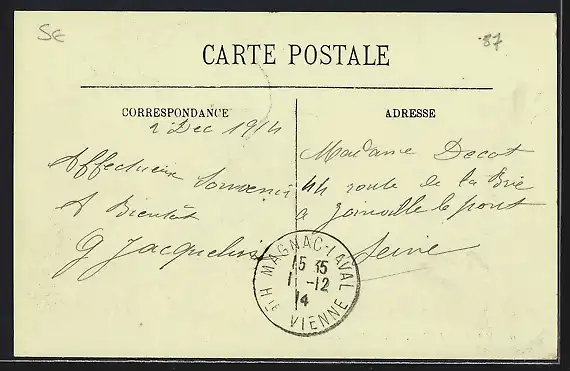 SE
87
CARTE POSTALE
CORRESPONDANCE
1 Dec 1914
Affectueux Souvenir
A Bientôt
G Jacquelin
ADRESSE
Madame Decot
44 route de la Brie
a Joinville le pont
Seine
MAGNAC-LAVAL
15 35
1 -12
14
Hte VIENNE